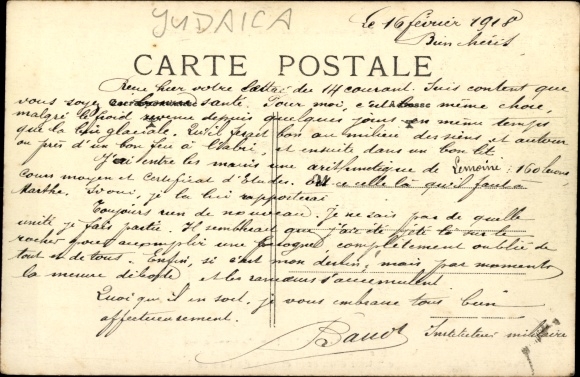 JUDAICA
Le 16 février 1918
Bien chéris,
CARTE POSTALE
Reçu hier votre lettre du 14 courant. Suis content que
vous soyez en bonne santé. Pour moi, c'est même chose,
malgré le froid revenu depuis quelques jours en même temps
que la bise glaciale. Qu'il ferait bon au milieu des siens et autour
ou près d'un bon feu à l'abri, et ensuite dans un bon lit.
J'ai entre les mains une arithmétique de Lemoine : 160 leçons
Cours moyen et Certificat d'Etudes. Est-ce celle là qu'il faut à
Marthe. Si oui, je la lui rapporterai
Toujours rien de nouveau. Je ne sais pas de quelle
unité je fais partie. Il semblerait que j'ai été jeté là sur le
rocher pour accomplir une besogne, complètement oublié de
tout et de tous. Enfin, si c'est mon destin, mais par moments
la mesure déborde et les rancœurs s'accumulent.
Quoi qu'il en soit, je vous embrasse tous bien
affectueusement.
Instituteur militaire